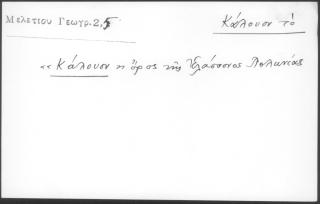 Μελετίου Γεωγρ. 2,5
Κάλουον τὸ
«Κάλουον τὸ ὄρος τῆς Ἐλάσσονος Πολωνίας